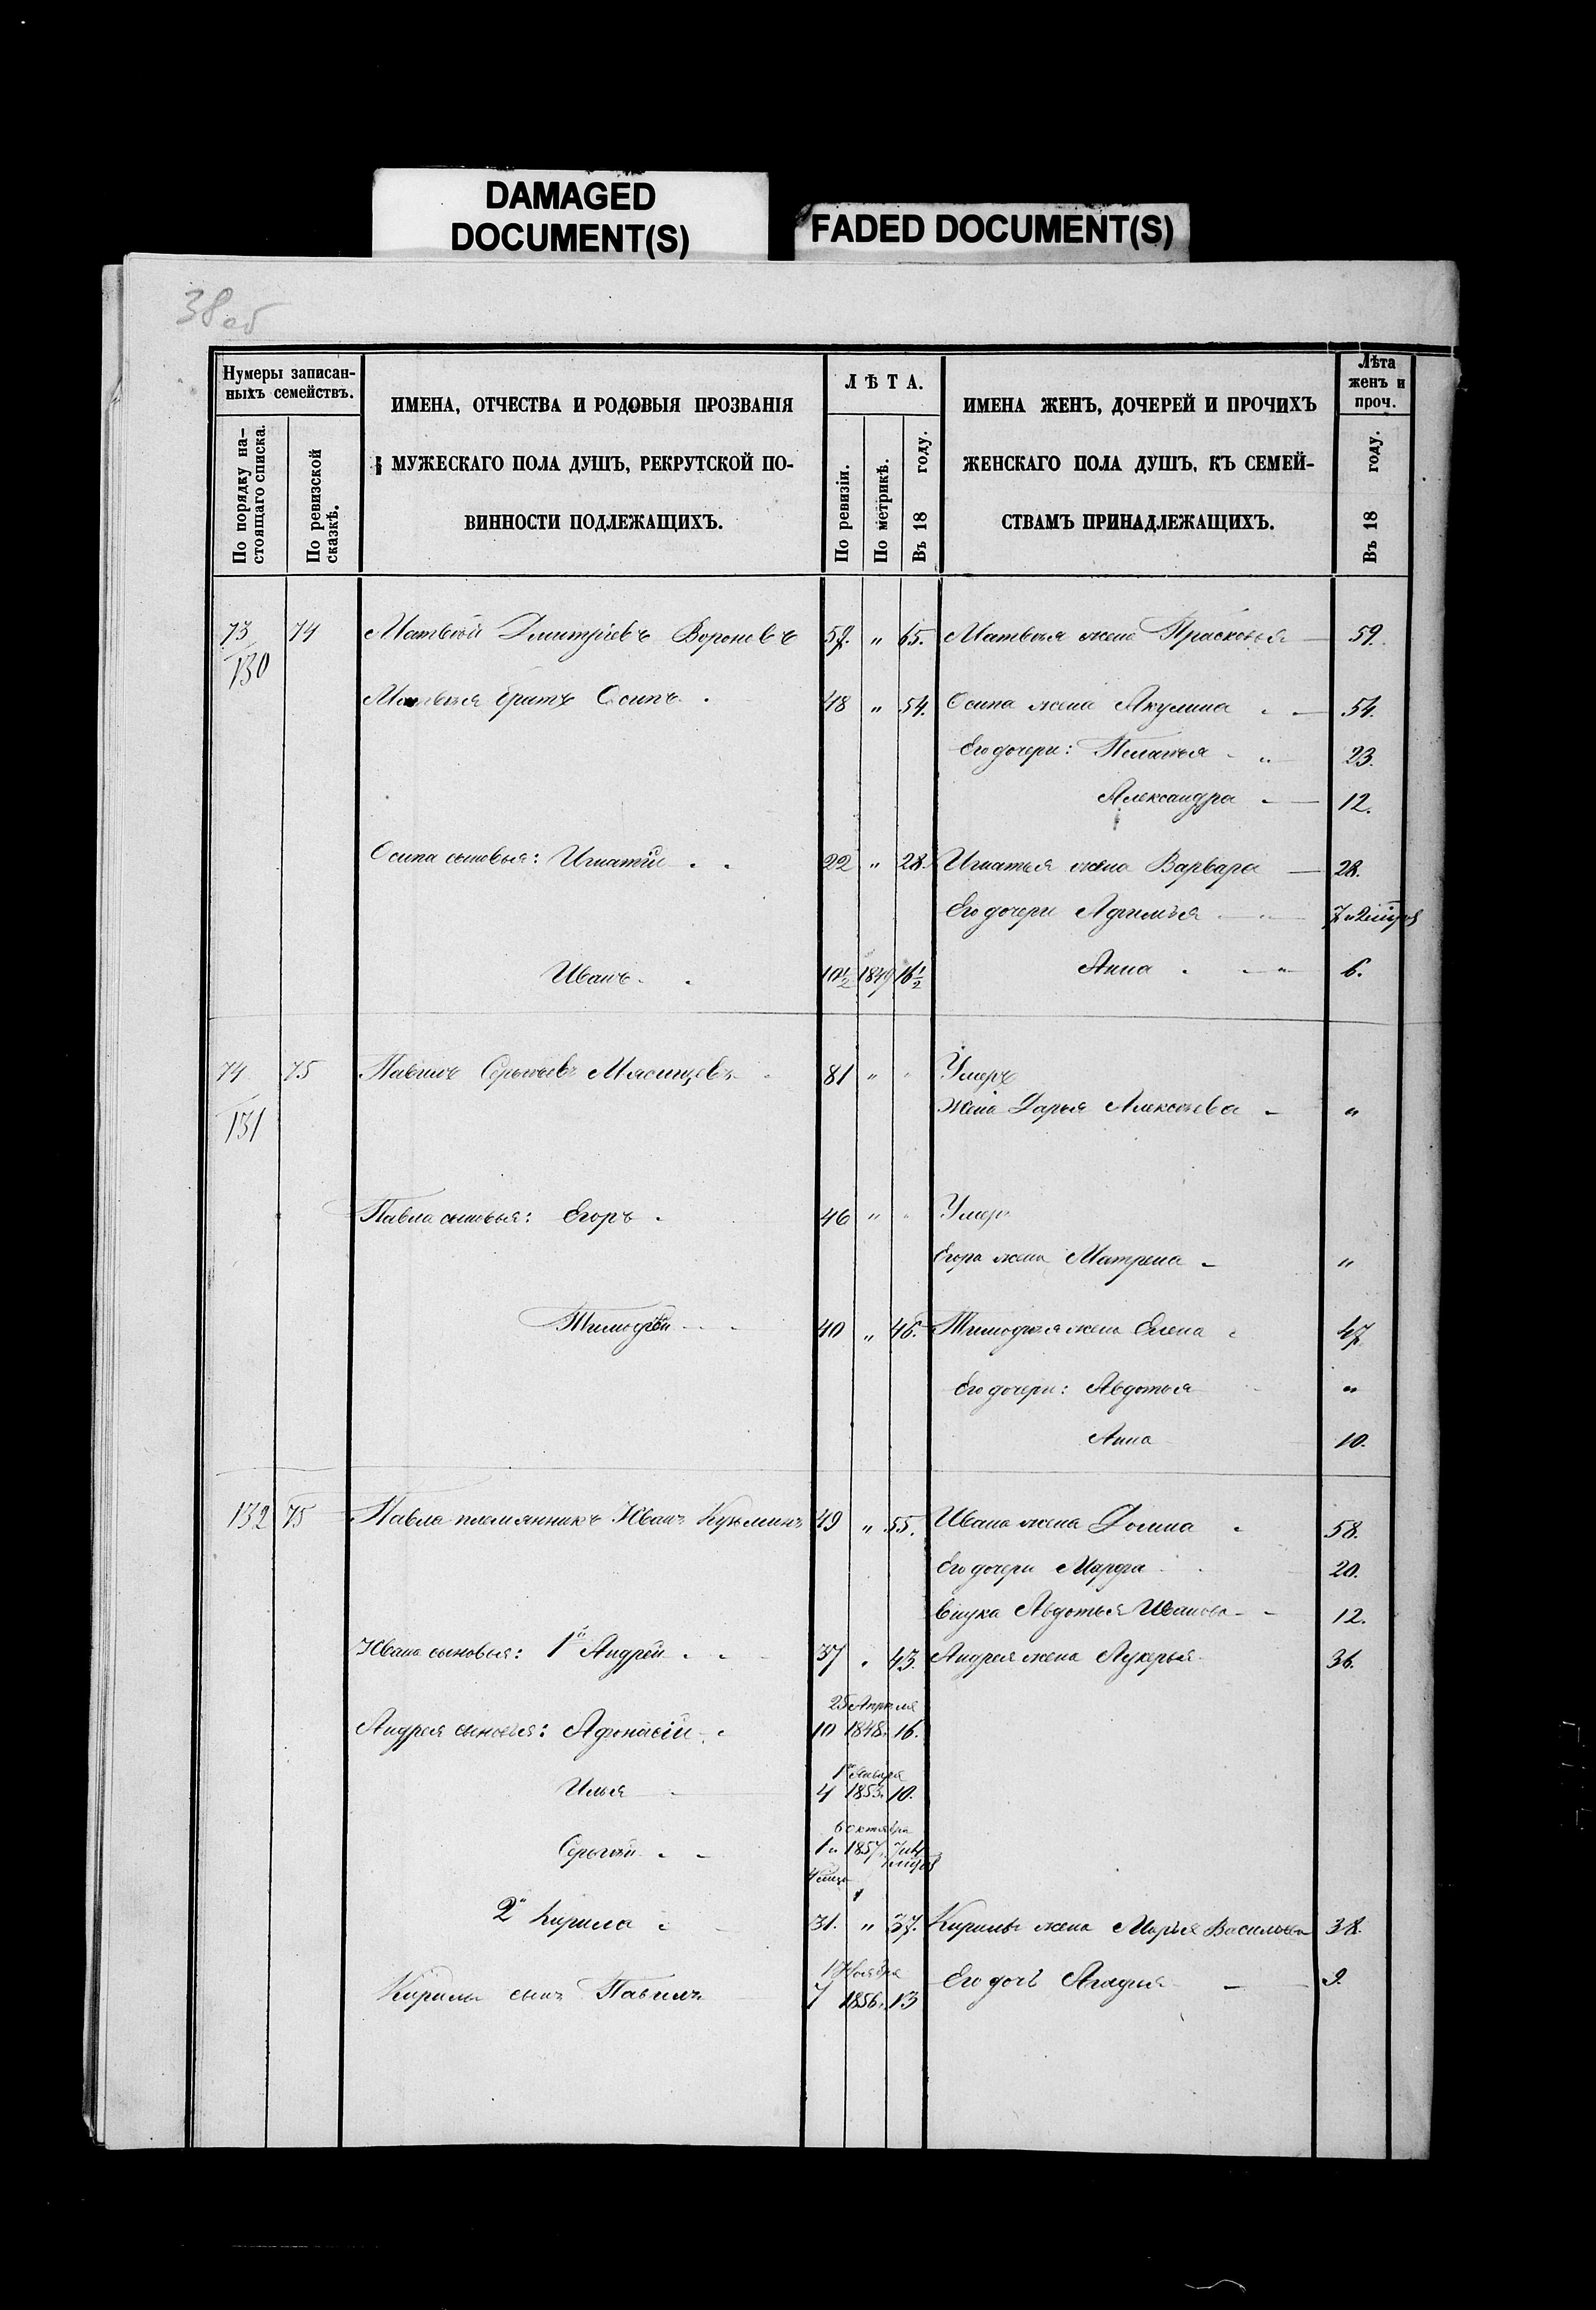 DAMAGED
DOCUMENT(S)
FADED DOCUMENT(S)
38об
Нумеры записан-
ныхъ семействъ.
По порядку на-
стоящаго списка.
По ревизской
сказкѣ.
ИМЕНА, ОТЧЕСТВА И РОДОВЫЯ ПРОЗВАНІЯ
МУЖЕСКАГО ПОЛА ДУШЪ, РЕКРУТСКОЙ ПО-
ВИННОСТИ ПОДЛЕЖАЩИХЪ.
ЛѢТА.
По ревизіи.
По метрикѣ.
Въ 18 году.
ИМЕНА ЖЕНЪ, ДОЧЕРЕЙ И ПРОЧИХЪ
ЖЕНСКАГО ПОЛА ДУШЪ, КЪ СЕМЕЙ-
СТВАМЪ ПРИНАДЛЕЖАЩИХЪ.
Лѣта
женъ и
проч.
Въ 18 году.
73 74 Матвѣй Дмитріевъ Вороновъ 59. " 65. Матвѣя жена Прасковья 59.
130
Матвѣя братъ Осипъ 48 " 54. Осипа жена Акулина 54.
Его дочери: Пелагея " 23.
Александра 12.
Осипа сыновья: Игнатій 22 " 28. Игнатья жена Варвара 28.
Его дочери Афимья 7 и
Иванъ 10½ 1849 16½ Анна " 6.
74 75 Павелъ Сергѣевъ 81 " Умеръ
131
Жена Дарья Алексѣева "
Павла сыновья: Егоръ 46 " Умеръ
Егора жена Матрена "
Тимофѣй 40 " 46. Тимофѣя жена Елена 47.
Его дочери: Авдотья "
Анна 10.
132 75 Павла племянникъ Иванъ Кузьминъ 49 " 55. Ивана жена Домна 58.
Его дочери Марфа 20.
внука Авдотья Иванова 12.
Ивана сыновья: 1й Андрей 37 43. Андрея жена Лукерья 36.
25 Апреля
Андрея сыновья: Афонасій 10 1848. 16.
1го Января
Илья 4 1853. 10.
6 октября
Сергѣй 1 и 1857. 7 и 4
4 мица
2й Кирила 31. " 37. Кирилы жена Марья Васильева 38.
1 Ноября
Кирилы сынъ Павелъ 7 1856. 13 Его дочь Агафья 9.